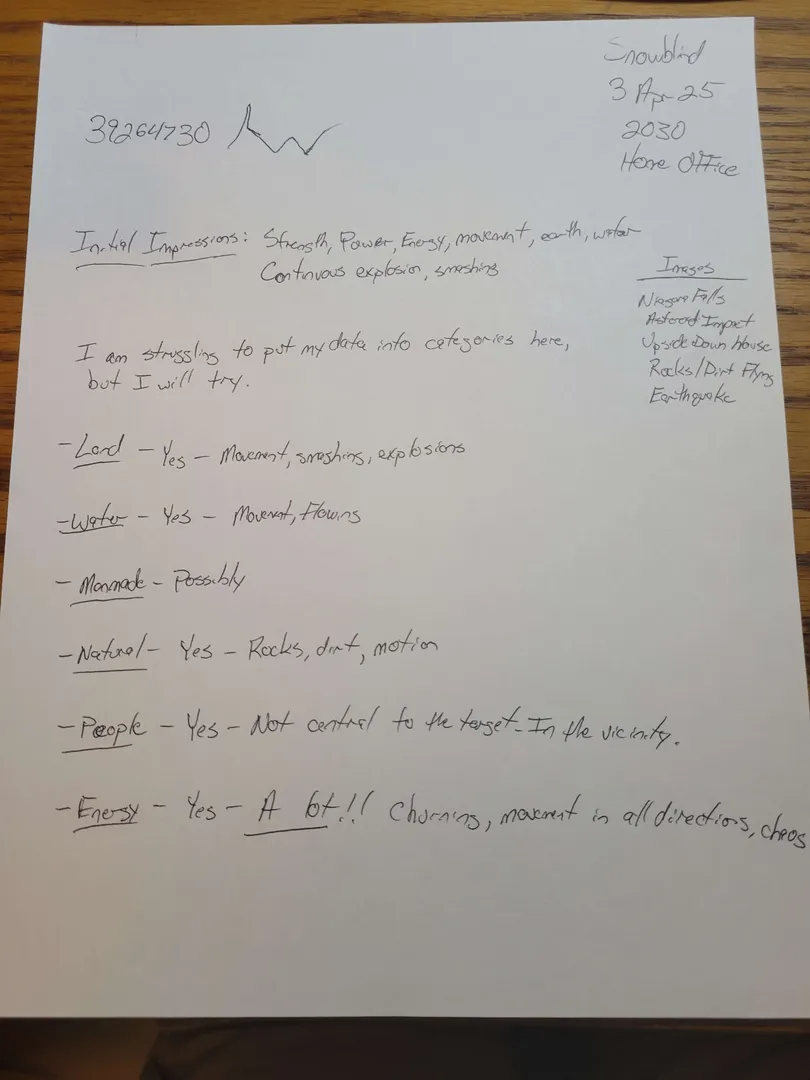 Snowblind
3 Apr 25
2030
Home Office
39264730
Initial Impressions: Strength, Power, Energy, movement, earth, water
Continuous explosion, smashing
Images
Niagara Falls
Asteroid Impact
Upside Down House
Rocks/Dirt Flying
Earthquake
I am struggling to put my data into categories here,
but I will try.
- Land - Yes - Movement, smashing, explosions
- Water - Yes - Movement, Flowing
- Manmade - Possibly
- Natural - Yes - Rocks, dirt, motion
- People - Yes - Not central to the target. In the vicinity.
- Energy - Yes - A lot!! Churning, movement in all directions, chaos